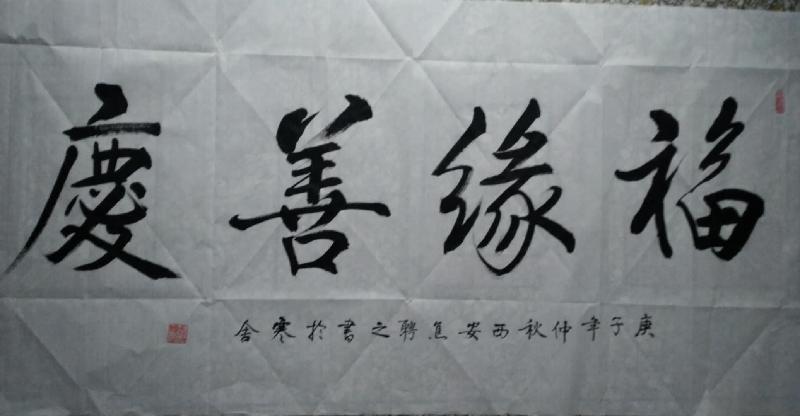 福缘善慶
庚子年仲秋西安焦聘之書於寒舍